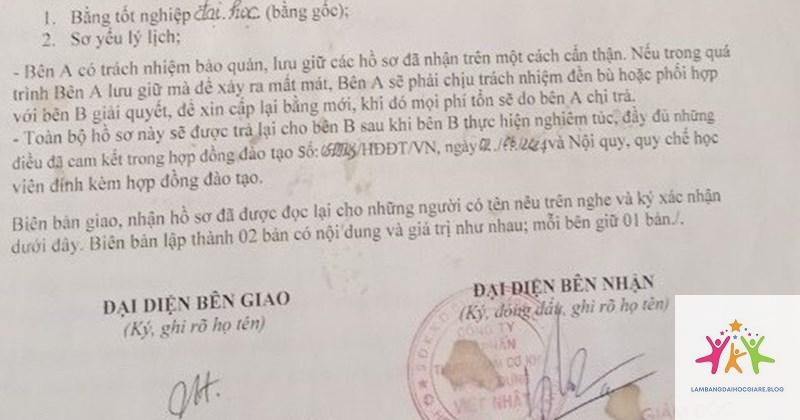 1. Bằng tốt nghiệp đại học (bằng gốc);
2. Sơ yếu lý lịch;
- Bên A có trách nhiệm bảo quản, lưu giữ các hồ sơ đã nhận trên một cách cẩn thận. Nếu trong quá
trình Bên A lưu giữ mà để xảy ra mất mát, Bên A sẽ phải chịu trách nhiệm đền bù hoặc phối hợp
với bên B giải quyết, để xin cấp lại bằng mới, khi đó mọi phí tổn sẽ do bên A chi trả.
- Toàn bộ hồ sơ này sẽ được trả lại cho bên B sau khi bên B thực hiện nghiêm túc, đầy đủ những
điều đã cam kết trong hợp đồng đào tạo Số: /HĐĐT/VN, ngày và Nội quy, quy chế học
viên đính kèm hợp đồng đào tạo.
Biên bản giao, nhận hồ sơ đã được đọc lại cho những người có tên nêu trên nghe và ký xác nhận
dưới đây. Biên bản lập thành 02 bản có nội dung và giá trị như nhau; mỗi bên giữ 01 bản./.
ĐẠI DIỆN BÊN GIAO
(Ký, ghi rõ họ tên)
ĐẠI DIỆN BÊN NHẬN
(Ký, đóng dấu, ghi rõ họ tên)
CÔNG TY
PHẦN
CƠ KH
VIỆT NHẬT
GIÁM
LAMBANGDAIHOCGIARE.BLOG